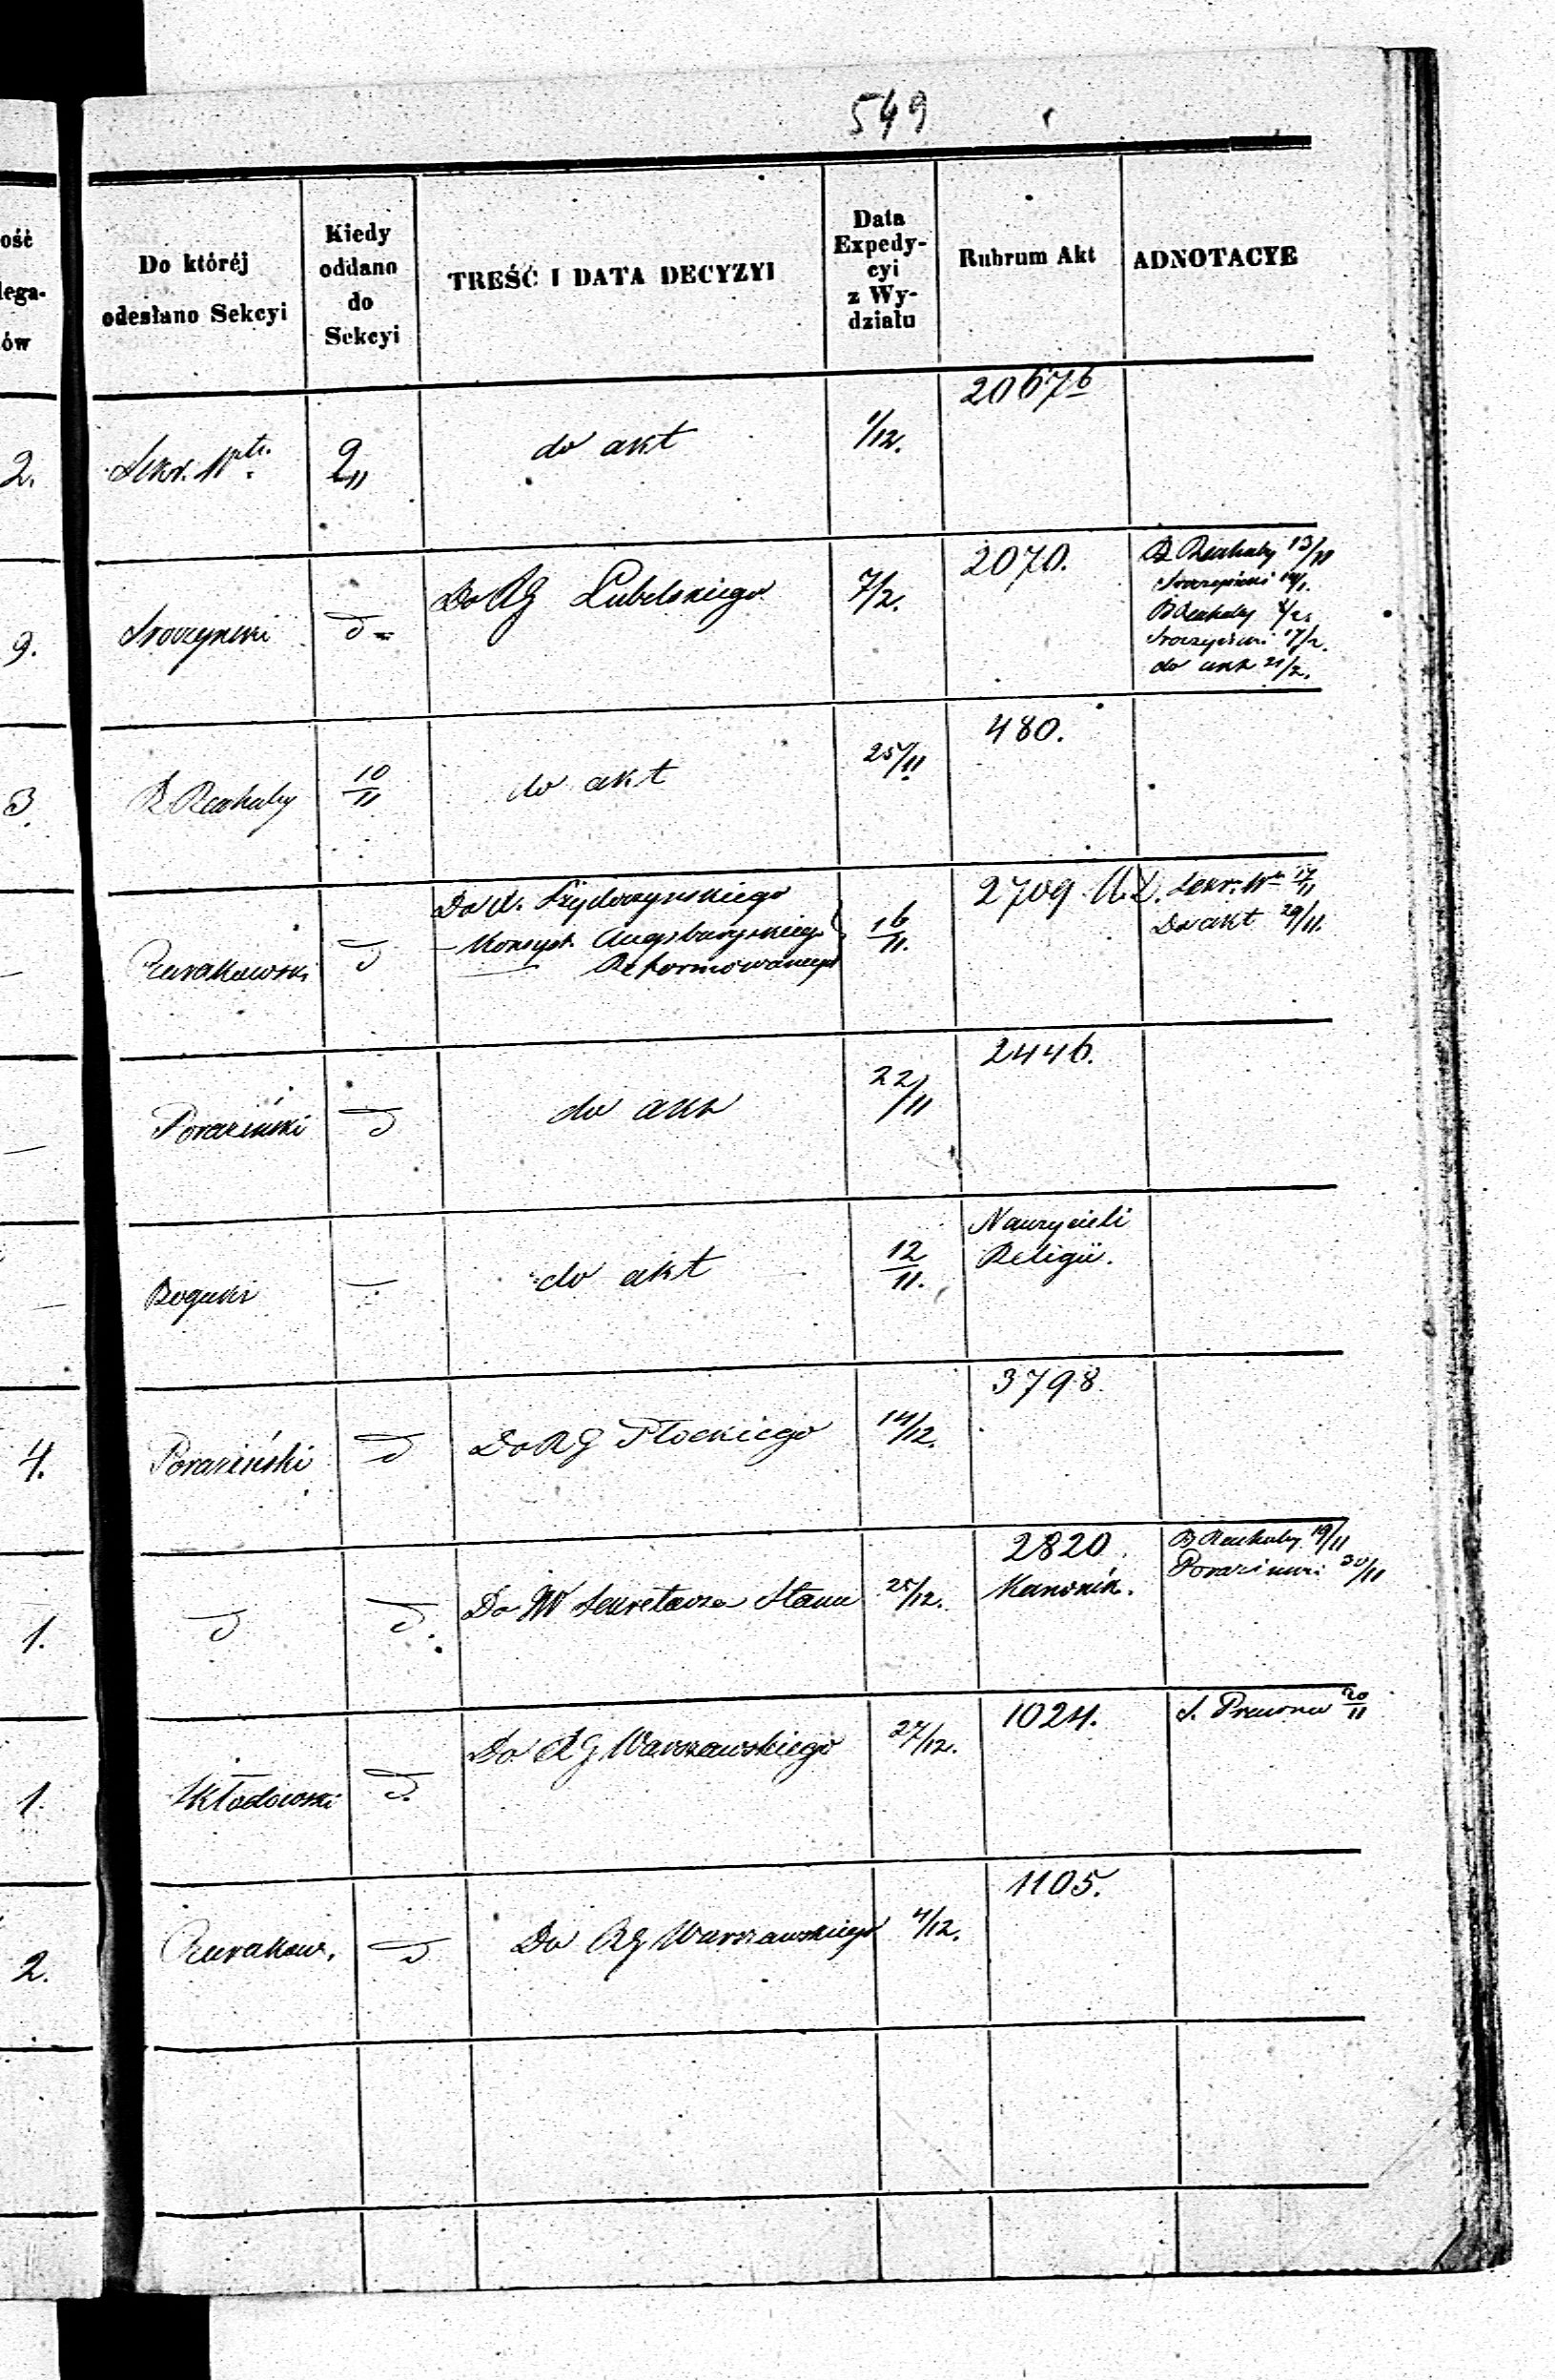 549
ość
lega-
ów
Do któréj
odesłano Sekcyi
Kiedy
oddano
do
Sekcyi
TREŚĆ I DATA DECYZYI
Data
Expedy-
cyi
z Wy-
działu
Rubrum Akt
ADNOTACYE
2.
Sekr.
9/11
do akt
1/12.
2067 b
9.
Sroczyński
d
Do RG Lubelskiego
7/2.
2070.
B Renhaby 13/11
Sroczyński
B Renhaby
Sroczyński 17/2.
do akt 21/2.
3.
B Renhaby
10/11
do akt
25/11
480.
Żurakowski
d
Do
Konsyst. Augsburgskiego
— Reformowanego
16/11.
2709
Sekr. Wu 17/11
Do akt 29/11.
Poraziński
d
do akt
22/11
2446.
Bogucki
—
do akt
12/11.
Nauczycieli
Religii.
4.
Poraziński
d
Do RG Płockiego
14/12.
3798.
1.
d
d.
Do JW Sekretarza Stanu
25/12.
2820.
Kanonik.
B Renhaby 19/11
Poraziński 30/11
1.
Skłodowski
d.
Do RG Warszawskiego
27/12.
1024.
S. Prawna 20/11
2.
Żurakow.
d
Do RG Warszawskiego
4/12.
1105.